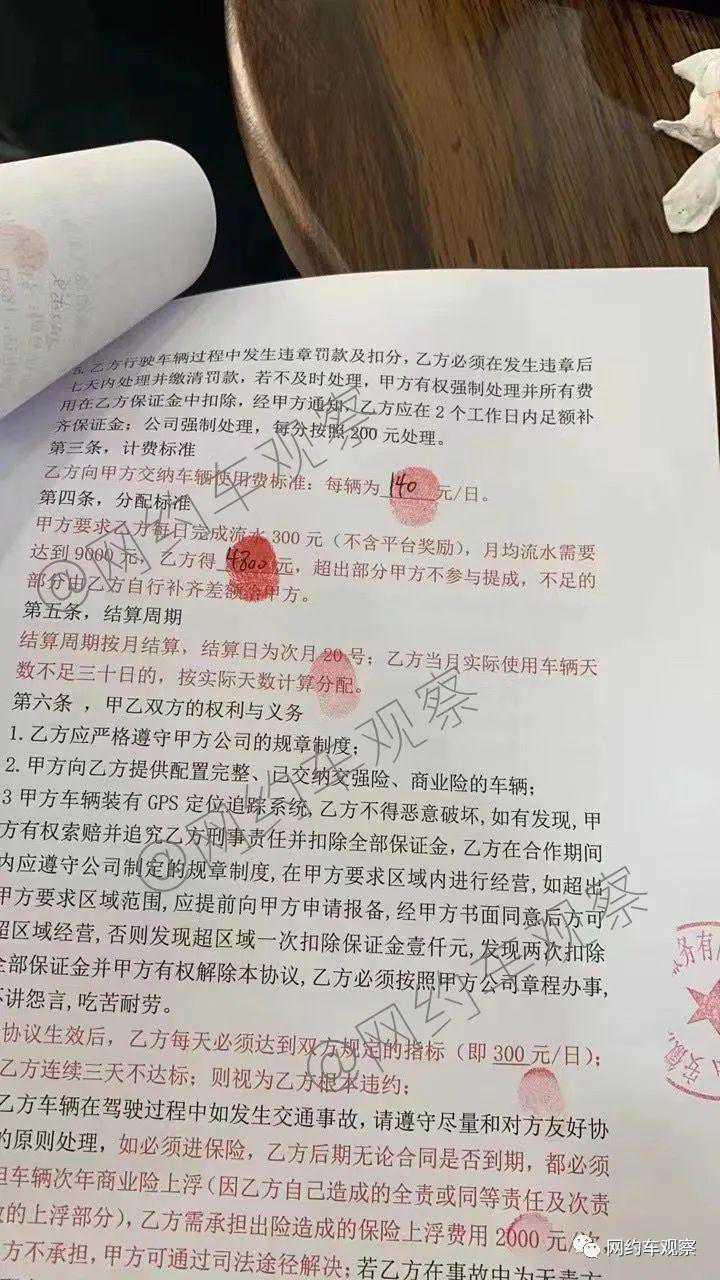 5. 乙方行驶车辆过程中发生违章罚款及扣分，乙方必须在发生违章后
七天内处理并缴清罚款，若不及时处理，甲方有权强制处理并所有费
用在乙方保证金中扣除，经甲方通知，乙方应在2个工作日内足额补
齐保证金；公司强制处理，每分按照200元处理。
第三条，计费标准
乙方向甲方交纳车辆使用费标准：每辆为 140 元/日。
第四条，分配标准
甲方要求乙方每日完成流水300元（不含平台奖励），月均流水需要
达到9000元，乙方得 4800 元，超出部分甲方不参与提成，不足的
部分由乙方自行补齐差额给甲方。
第五条，结算周期
结算周期按月结算，结算日为次月20号；乙方当月实际使用车辆天
数不足三十日的，按实际天数计算分配。
第六条 ，甲乙双方的权利与义务
1.乙方应严格遵守甲方公司的规章制度；
2.甲方向乙方提供配置完整、已交纳交强险、商业险的车辆；
3 甲方车辆装有GPS定位追踪系统,乙方不得恶意破坏,如有发现,甲
方有权索赔并追究乙方刑事责任并扣除全部保证金,乙方在合作期间
内应遵守公司制定的规章制度,在甲方要求区域内进行经营,如超出
甲方要求区域范围,应提前向甲方申请报备,经甲方书面同意后方可
超区域经营,否则发现超区域一次扣除保证金壹仟元,发现两次扣除
全部保证金并甲方有权解除本协议,乙方必须按照甲方公司章程办事,
不讲怨言,吃苦耐劳。
协议生效后，乙方每天必须达到双方规定的指标（即300元/日）；
乙方连续三天不达标；则视为乙方根本违约；
乙方车辆在驾驶过程中如发生交通事故，请遵守尽量和对方友好协
的原则处理，如必须进保险，乙方后期无论合同是否到期，都必须
担车辆次年商业险上浮（因乙方自己造成的全责或同等责任及次责
的上浮部分），乙方需承担出险造成的保险上浮费用2000元/次，
方不承担，甲方可通过司法途径解决；若乙方在事故中为无责方
务有
@网约车观察
@网约车观察
@网约车观察
网约车观察